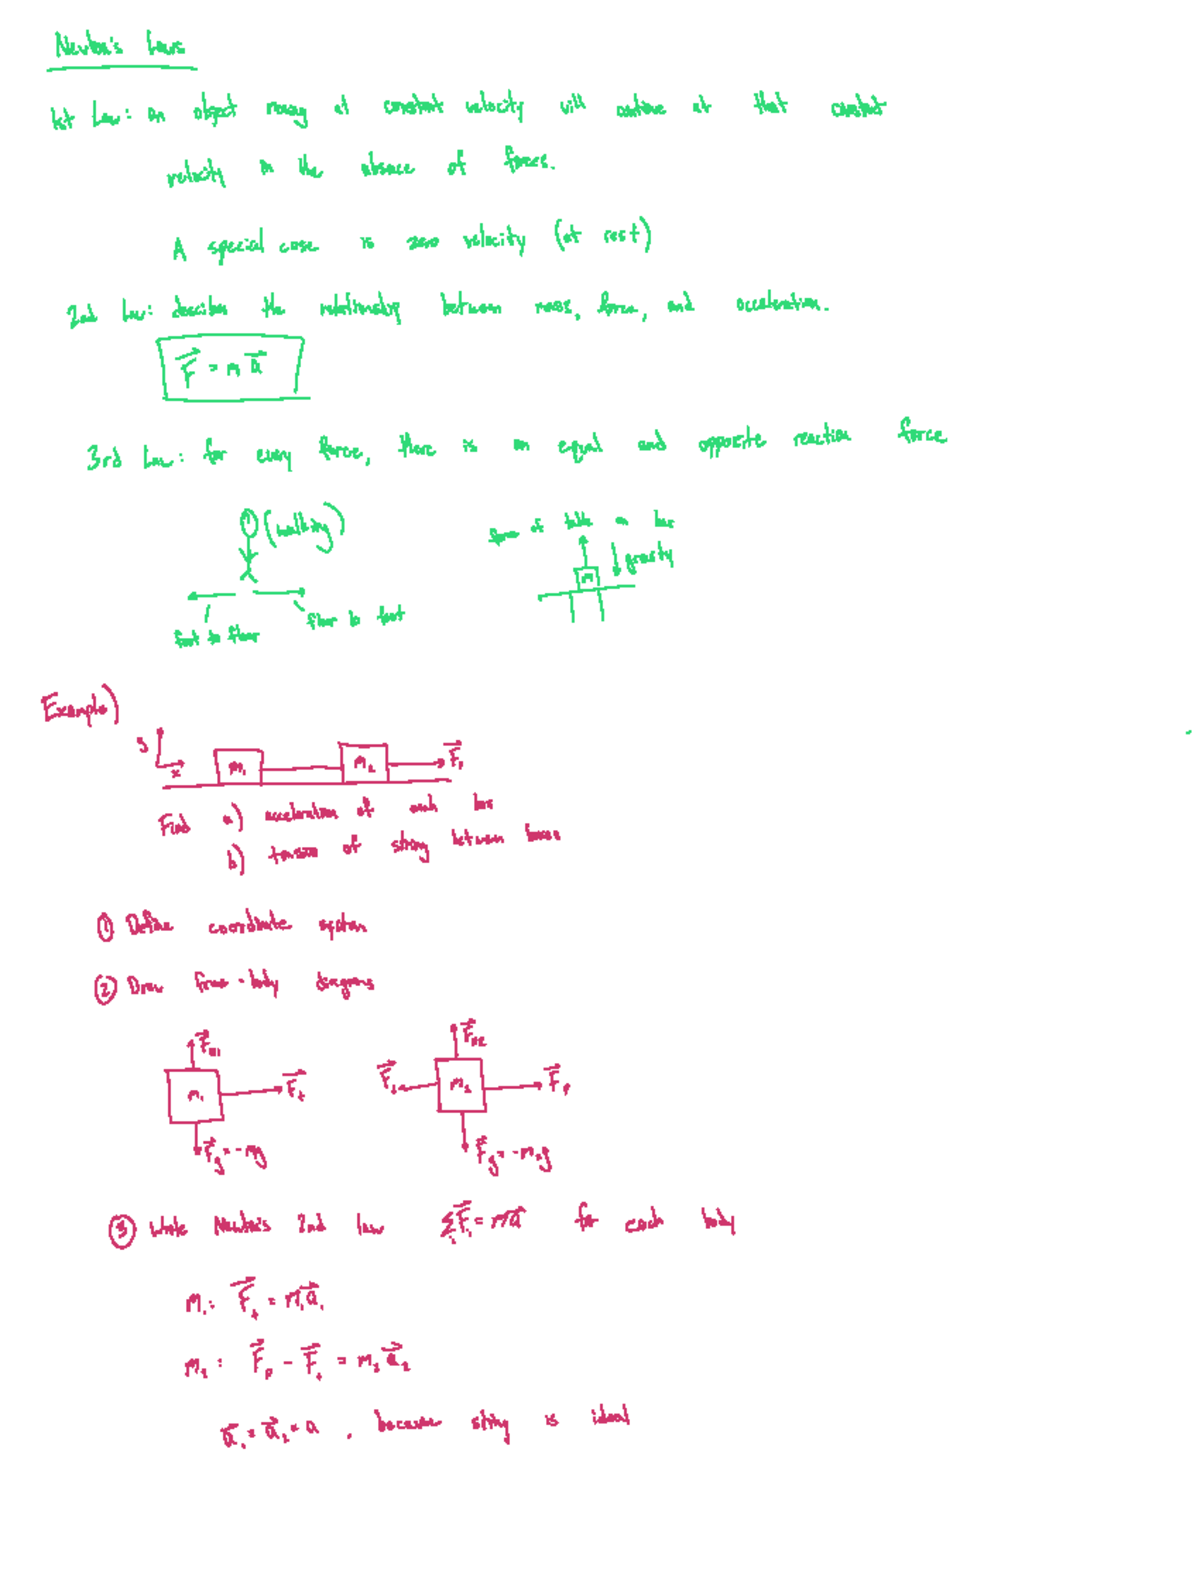 Newton's Laws
1st Law: an object moving at constant velocity will continue at that constant
velocity in the absence of forces.
A special case is zero velocity (at rest)
2nd Law: describes the relationship between mass, force, and acceleration.
F⃗ = m a⃗
3rd Law: for every force, there is an equal and opposite reaction force
(walking)
force of table on box
gravity
m
floor to foot
foot to floor
Example)
y
x
m₁
m₂
F⃗p
Find a) acceleration of each box
b) tension of string between boxes
① Define coordinate system
② Draw free-body diagrams
F⃗N1
m₁
F⃗t
F⃗g = -mg
F⃗N2
F⃗t
m₂
F⃗p
F⃗g = -m₂g
③ Write Newton's 2nd law ΣᵢF⃗ᵢ = ma⃗ for each body
m₁: F⃗t = m₁a⃗₁
m₂: F⃗p - F⃗t = m₂a⃗₂
a⃗₁ = a⃗₂ = a, because string is ideal